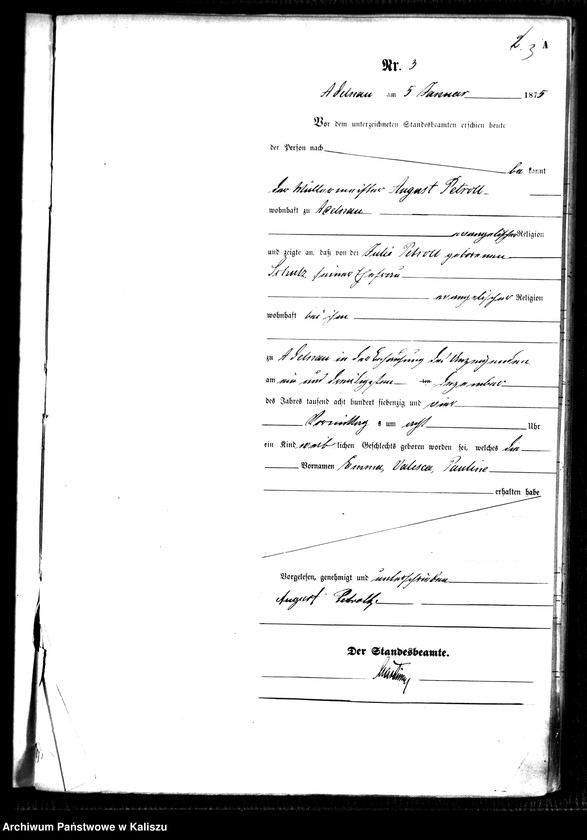 2. 3 A
Nr. 3
Adelnau am 5 Januar 1875
Vor dem unterzeichneten Standesbeamten erschien heute
der Person nach
be kannt
der Müllermeister August Petroll
wohnhaft zu Adelnau
evangelischer Religion
und zeigte an, daß von der Julie Petroll geborenen
Schulz seiner Ehefrau
evangelischer Religion
wohnhaft bei ihm
zu Adelnau in der Behausung des Anzeigenden
am ein und dreißigsten Dezember
des Jahres tausend acht hundert siebenzig und vier
Vormittag s um acht Uhr
ein Kind weib lichen Geschlechts geboren worden sei, welches den
Vornamen Emma, Valesca, Pauline
erhalten habe
Vorgelesen, genehmigt und unterschrieben
August
Der Standesbeamte.
Archiwum Państwowe w Kaliszu